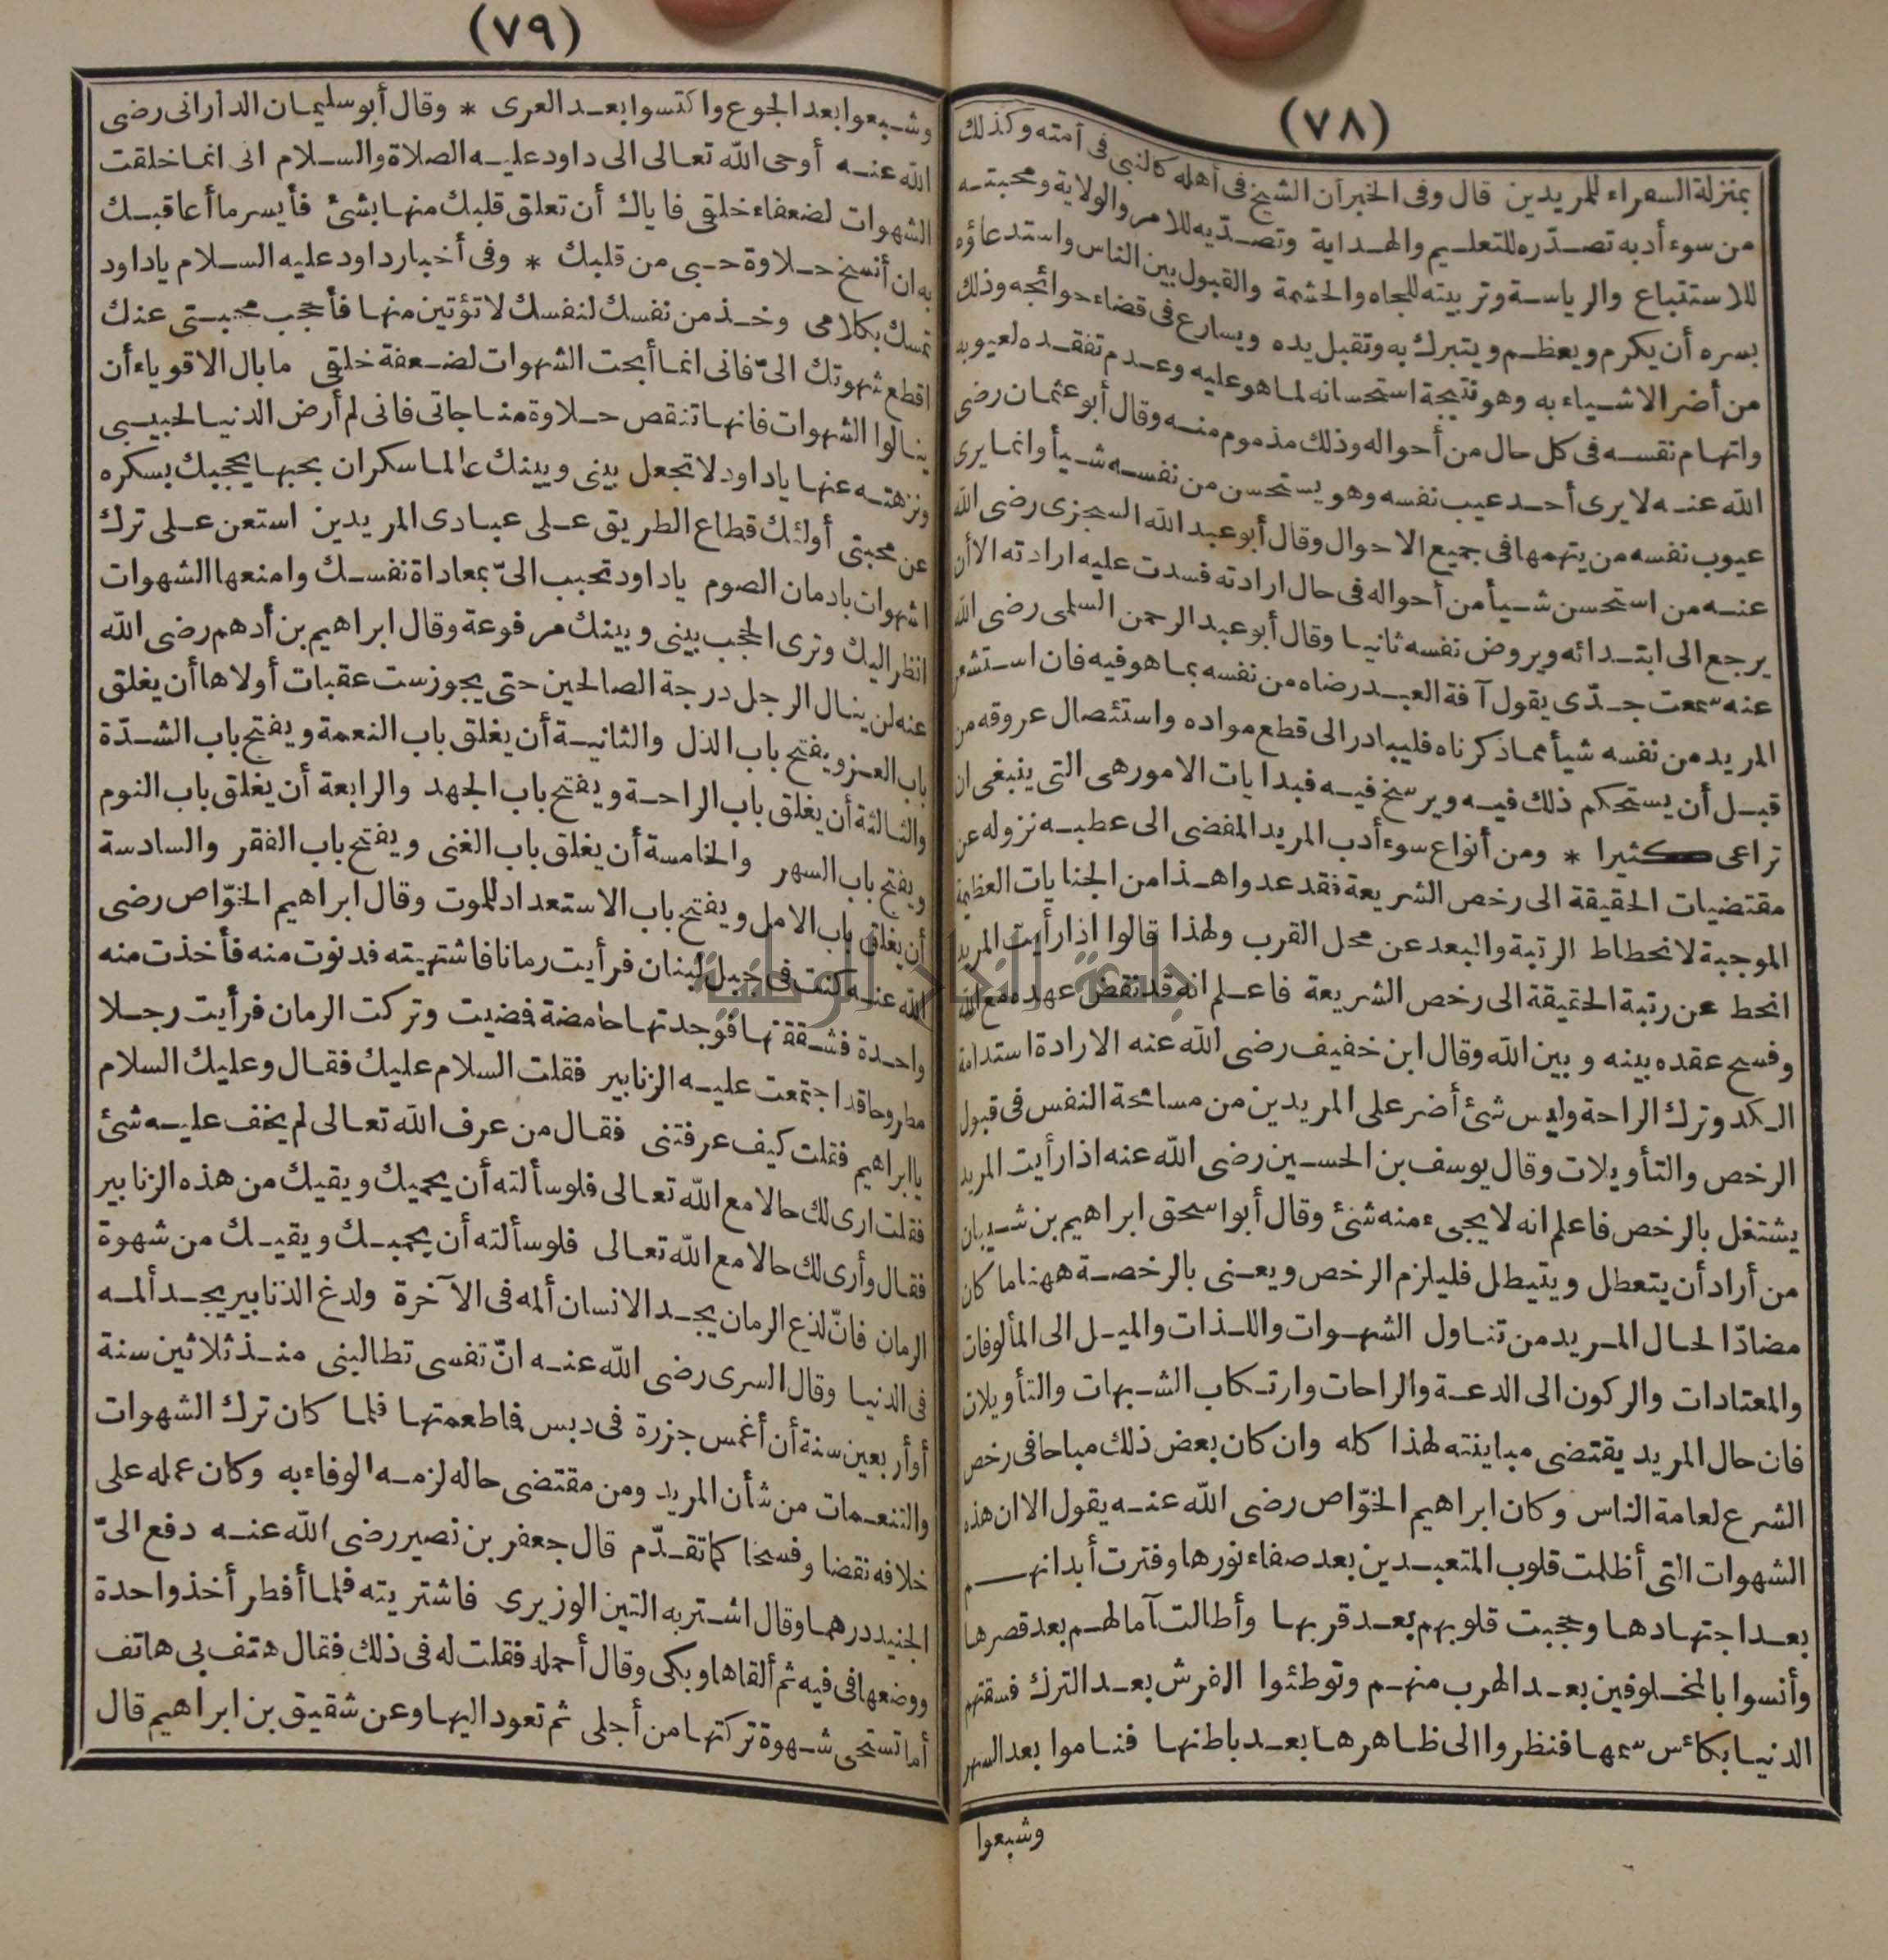 (٧٨)
بمنزلة السفراء للمريدين قال وفى الخبر أن الشيخ فى أهله كالنبى فى أمته وكذلك
من سوء أدبه تصدّره للتعليم والهداية وتصدّيه للامر والولاية ومحبته
للاستتباع والرياسة وتربيته للجاه والحشمة والقبول بين الناس واستدعاؤه
بسره أن يكرم ويعظم ويتبرك به وتقبل يده ويسارع فى قضاء حوائجه وذلك
من أضر الاشياء به وهو نتيجة استحسانه لما هو عليه وعدم تفقده لعيوبه
واتهام نفسه فى كل حال من أحواله وذلك مذموم منه وقال أبو عثمان رضى
الله عنه لا يرى أحد عيب نفسه وهو يستحسن من نفسه شيأ وانما يرى
عيوب نفسه من يتهمها فى جميع الاحوال وقال أبو عبد الله السجزى رضى الله
عنه من استحسن شيأ من أحواله فى حال ارادته فسدت عليه ارادته الا أن
يرجع الى ابتدائه ويروض نفسه ثانيا وقال أبو عبد الرحمن السلمى رضى الله
عنه سمعت جدّى يقول آفة العبد رضاه من نفسه بما هو فيه فان استشعر
المريد من نفسه شيأ مما ذكرناه فليبادر الى قطع مواده واستئصال عروقه من
قبل أن يستحكم ذلك فيه ويرسخ فيه فبدايات الامور هى التى ينبغى ان
تراعى كثيرا * ومن أنواع سوء أدب المريد المفضى الى عطبه نزوله عن
مقتضيات الحقيقة الى رخص الشريعة فقد عدوا هذا من الجنايات العظيمة
الموجبة لانحطاط الرتبة والبعد عن محل القرب ولهذا قالوا اذا رأيت المريد
انحط عن رتبة الحقيقة الى رخص الشريعة فاعلم انه قد نقض عهده مع الله
وفسخ عقده بينه وبين الله وقال ابن خفيف رضى الله عنه الارادة استدامة
الكد وترك الراحة وليس شئ أضر على المريدين من مسامحة النفس فى قبول
الرخص والتأويلات وقال يوسف بن الحسين رضى الله عنه اذا رأيت المريد
يشتغل بالرخص فاعلم انه لا يجىء منه شئ وقال أبو اسحق ابراهيم بن شيبان
من أراد أن يتعطل ويتبطل فليلزم الرخص ويعنى بالرخصة ههنا ما كان
مضادّا لحال المريد من تناول الشهوات واللذات والميل الى المألوفات
والمعتادات والركون الى الدعة والراحات وارتكاب الشبهات والتأويلات
فان حال المريد يقتضى مباينته لهذا كله وان كان بعض ذلك مباحا فى رخص
الشرع لعامة الناس وكان ابراهيم الخوّاص رضى الله عنه يقول الا ان هذه
الشهوات التى أظلمت قلوب المتعبدين بعد صفاء نورها وفترت أبدانهم
بعد اجتهادها وحجبت قلوبهم بعد قربها وأطالت آمالهم بعد قصرها
وأنسوا بالمخلوفين بعد الهرب منهم وتوطئوا الفرش بعد الترك فسقتهم
الدنيا بكائس سمها فنظروا الى ظاهرها بعد باطنها فناموا بعد السهر
وشبعوا
(٧٩)
وشبعوا بعد الجوع واكتسوا بعد العرى * وقال أبو سليمان الدارانى رضى
الله عنه أوحى الله تعالى الى داود عليه الصلاة والسلام انى انما خلقت
الشهوات لضعفاء خلقى فاياك أن تعلق قلبك منها بشئ فأيسر ما أعاقبك
به ان أنسخ حلاوة حبى من قلبك * وفى أخبار داود عليه السلام ياداود
تمسك بكلامى وخذ من نفسك لنفسك لا تؤتين منها فأحجب محبتى عنك
اقطع شهوتك الىّ فانى انما أبحت الشهوات لضعفة خلقى ما بال الاقوياء أن
ينالوا الشهوات فانها تنقص حلاوة مناجاتى فانى لم أرض الدنيا لحبيبى
ونزهته عنها ياداود لا تجعل بينى وبينك عالما سكران بحبها يحجبك بسكره
عن محبتى أولئك قطاع الطريق على عبادى المريدين استعن على ترك
اشهوات بادمان الصوم ياداود تحبب الىّ بمعاداة نفسك وامنعها الشهوات
انظر اليك وترى الحجب بينى وبينك مرفوعة وقال ابراهيم بن أدهم رضى الله
عنه لن ينال الرجل درجة الصالحين حتى يجوز ست عقبات أولاها أن يغلق
باب العز ويفتح باب الذل والثانية أن يغلق باب النعمة ويفتح باب الشدّة
والثالثة أن يغلق باب الراحة ويفتح باب الجهد والرابعة أن يغلق باب النوم
ويفتح باب السهر والخامسة أن يغلق باب الغنى ويفتح باب الفقر والسادسة
أن يغلق باب الامل ويفتح باب الاستعداد للموت وقال ابراهيم الخوّاص رضى
الله عنه كنت فى جبل لبنان فرأيت رمانا فاشتهيته فدنوت منه فأخذت منه
واحدة فشققتها فوجدتها حامضة فضيت وتركت الرمان فرأيت رجلا
مطروحا قد اجتمعت عليه الزنابير فقلت السلام عليك فقال وعليك السلام
يا ابراهيم فقلت كيف عرفتنى فقال من عرف الله تعالى لم يخف عليه شئ
فقلت ارى لك حالا مع الله تعالى فلو سألته أن يحميك ويقيك من هذه الزنابير
فقال وأرى لك حالا مع الله تعالى فلو سألته أن يحميك ويقيك من شهوة
الرمان فانّ لذع الرمان يجد الانسان ألمه فى الآخرة ولدغ الذنابير يجد ألمه
فى الدنيا وقال السرى رضى الله عنه انّ نفسى تطالبنى منذ ثلاثين سنة
أو أربعين سنة أن أغمس جزرة فى دبس فاطعمتها فلما كان ترك الشهوات
والتنعمات من شأن المريد ومن مقتضى حاله لزمه الوفاء به وكان عمله على
خلافه نقضا وفسخا كما تقدّم قال جعفر بن نصير رضى الله عنه دفع الىّ
الجنيد درهما وقال اشتر به التين الوزيرى فاشتريته فلما أفطر أخذ واحدة
ووضعها فى فيه ثم ألقاها وبكى وقال أحمله فقلت له فى ذلك فقال هتف بى هاتف
أما تستحى شهوة تركتها من أجلى ثم تعود اليها وعن شقيق بن ابراهيم قال
جامعة النجاح الوطنية